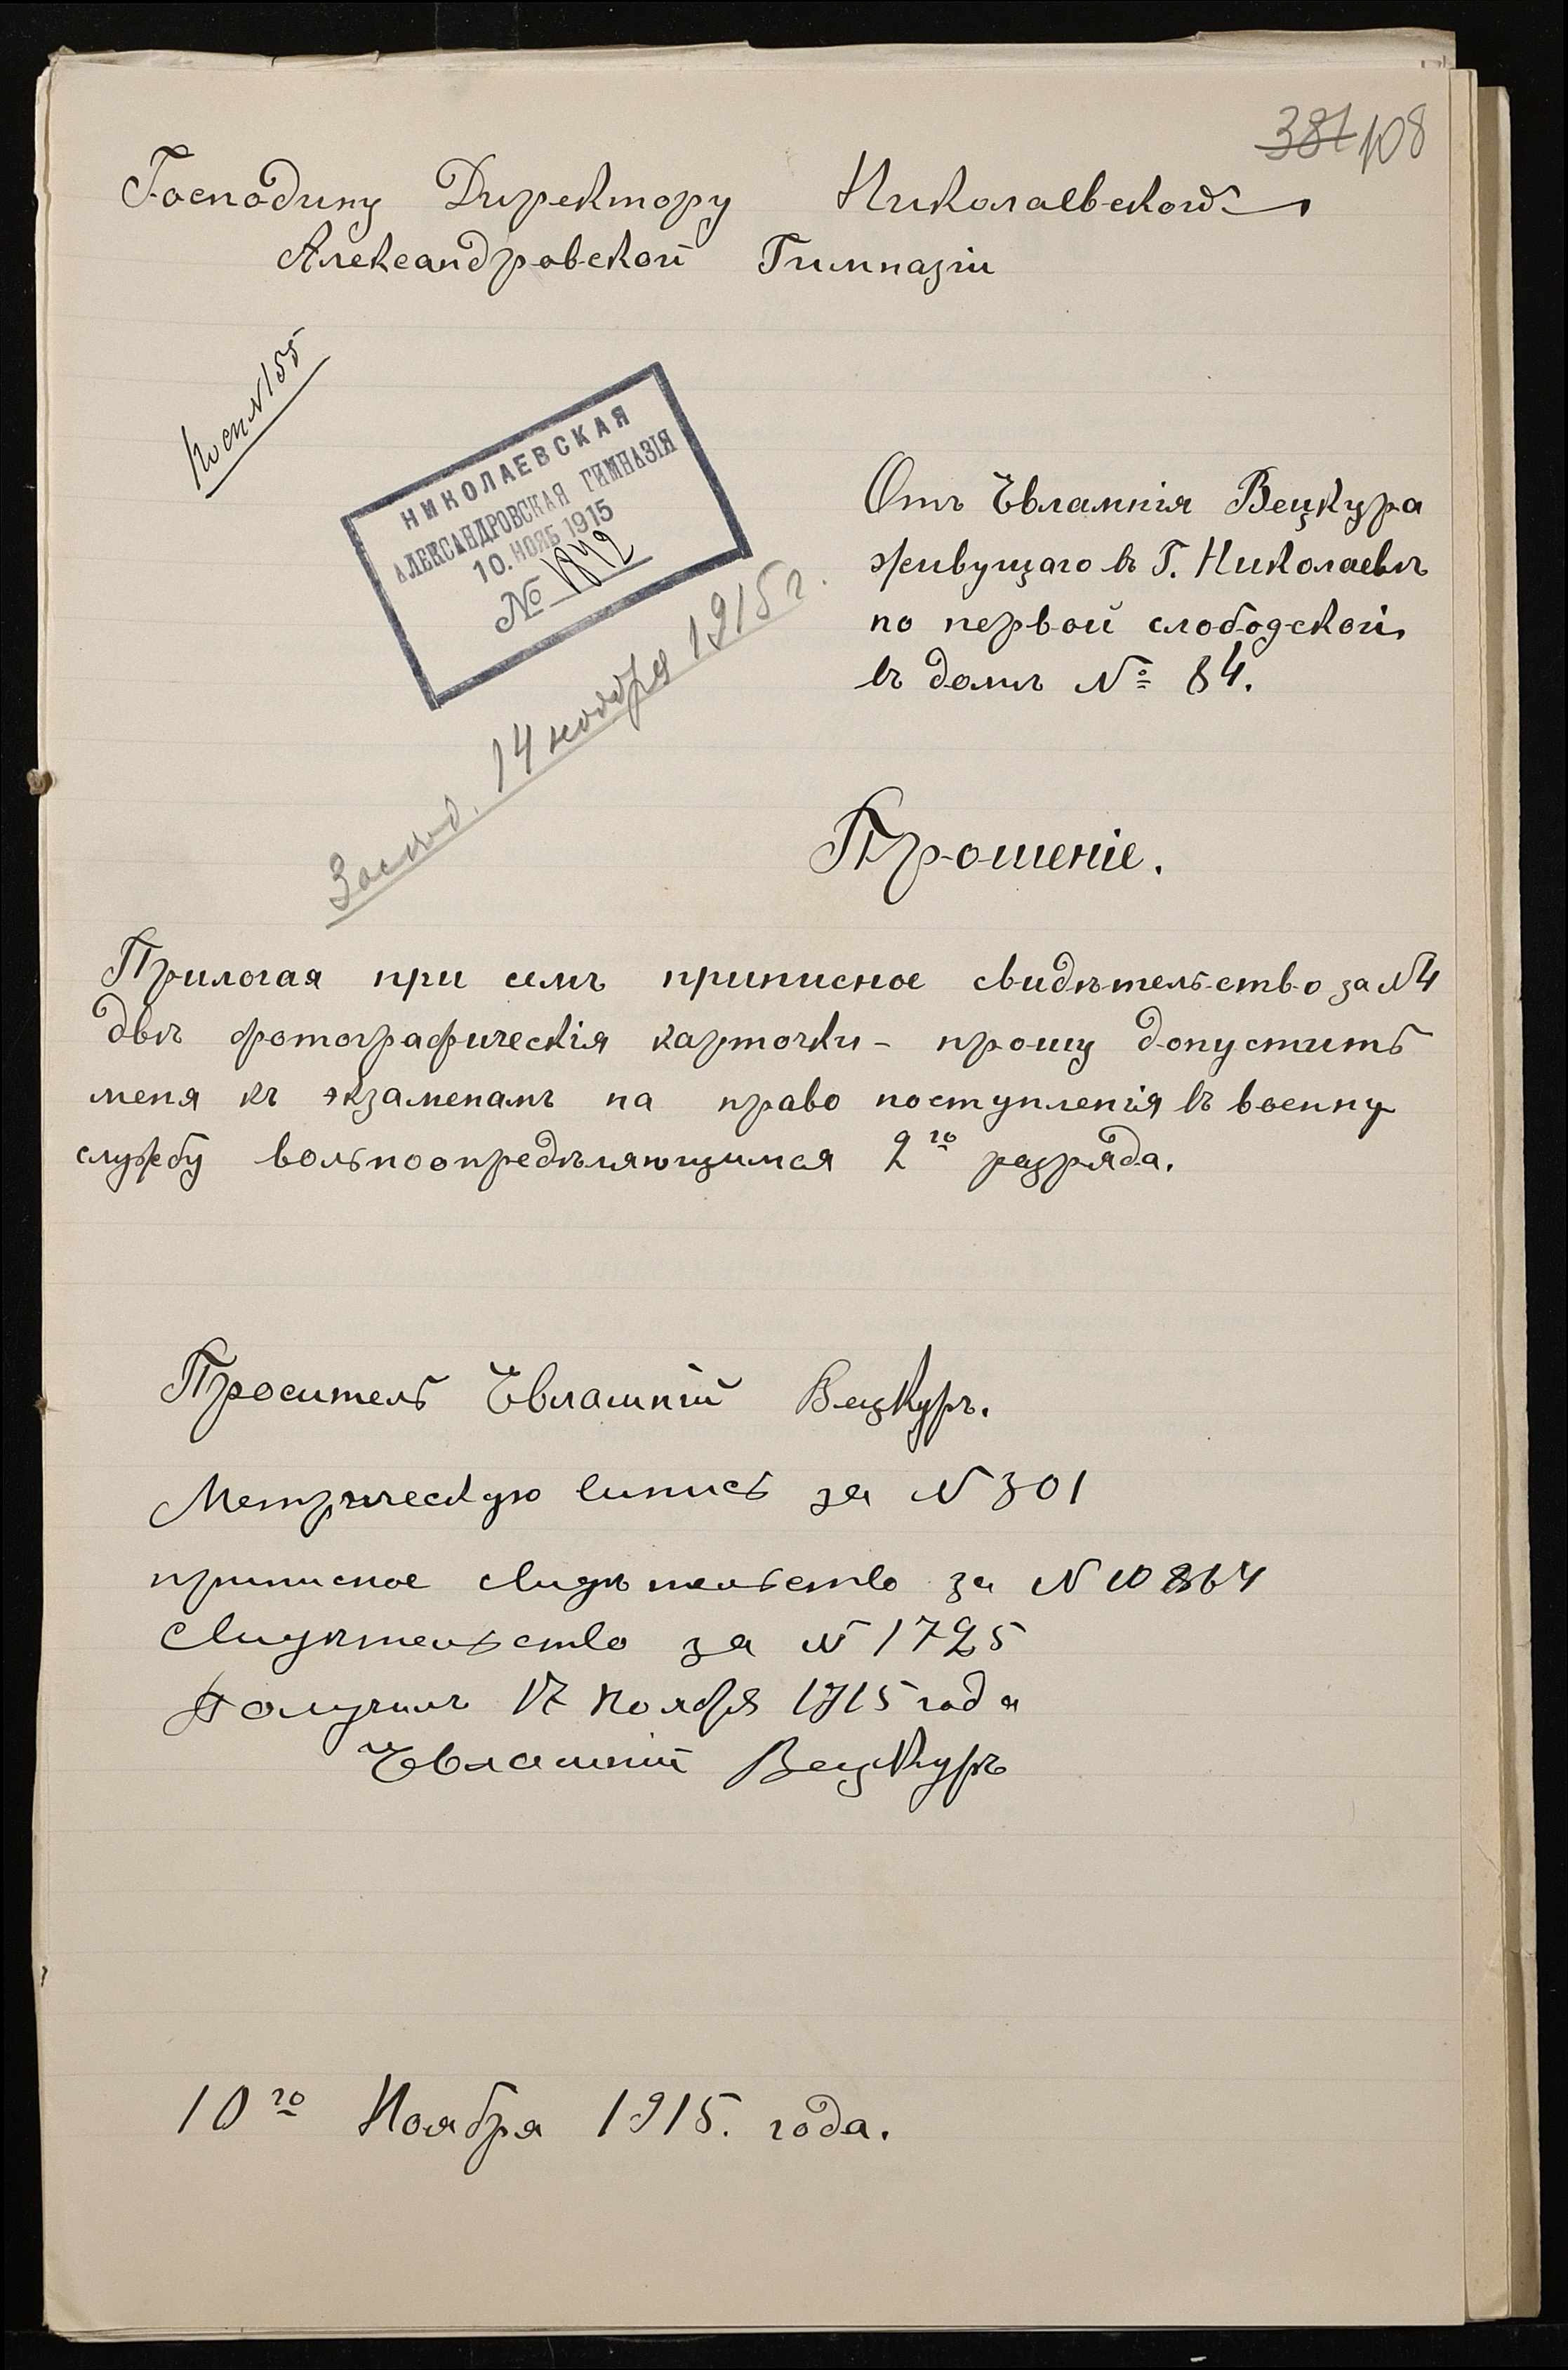 387 108
Господину Директору Николаевской
Александровской Гимназіи
по сп. N 155
НИКОЛАЕВСКАЯ
АЛЕКСАНДРОВСКАЯ ГИМНАЗІЯ
10. НОЯБ 1915
№ 1842
Отъ Евлампія Вецкура
живущаго въ Г. Николаевѣ
по первой слободской,
въ домѣ № 84.
14 ноября 1915 г.
Прошеніе.
Прилогая при семъ приписное свидѣтельство за N4
двѣ фотографическія карточки - прошу допустить
меня къ экзаменамъ на право поступленія въ военну
службу вольноопредѣляющимся 2го разряда.
Проситель Евлампій Вецкуръ.
Метрическую випись за N 301
приписное свидѣтельство за N 10864
Свидѣтельство за N 1725
Получилъ 17 Ноября 1915 года
Евлампій Вецкуръ
10го Ноября 1915. года.